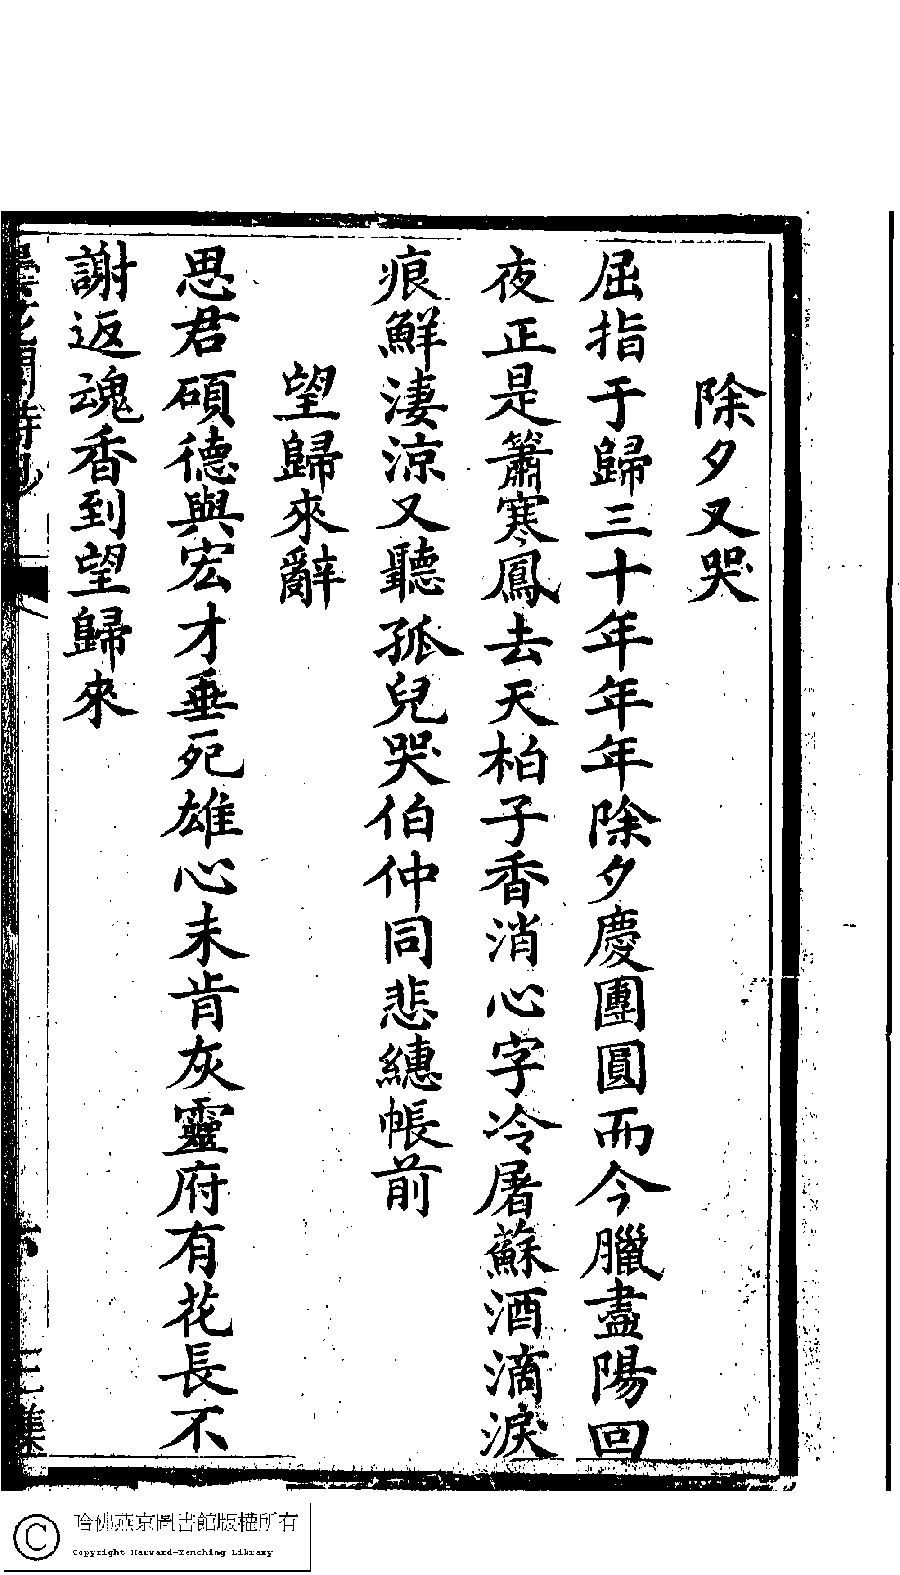 除夕又哭
屈指于歸三十年年年除夕慶團圓而今臘盡陽回
夜正是簫寒鳳去天柏子香消心字冷屠蘇酒滴淚
痕鮮淒涼又聽孤兒哭伯仲同悲繐帳前
望歸來辭
思君碩德與宏才垂死雄心未肯灰靈府有花長不
謝返魂香到望歸來
六 三集
哈佛燕京圖書館版權所有
Copyright Harvard-Yenching Library